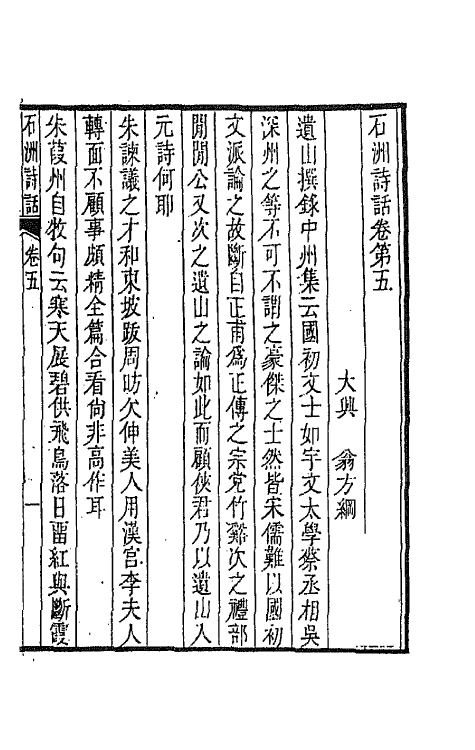 石洲詩話卷第五
大興　翁方綱
遺山撰錄中州集云國初文士如宇文太學蔡丞相吳
深州之等不可不謂之豪傑之士然皆宋儒難以國初
文派論之故斷自正甫爲正傳之宗党竹谿次之禮部
閒閒公又次之遺山之論如此而顧俠君乃以遺山入
元詩何耶
朱諫議之才和東坡跋周昉欠伸美人用漢宮李夫人
轉面不顧事頗精全篇合看尙非高作耳
朱葭州自牧句云寒天展碧供飛鳥落日畱紅與斷霞
石洲詩話　卷五　一